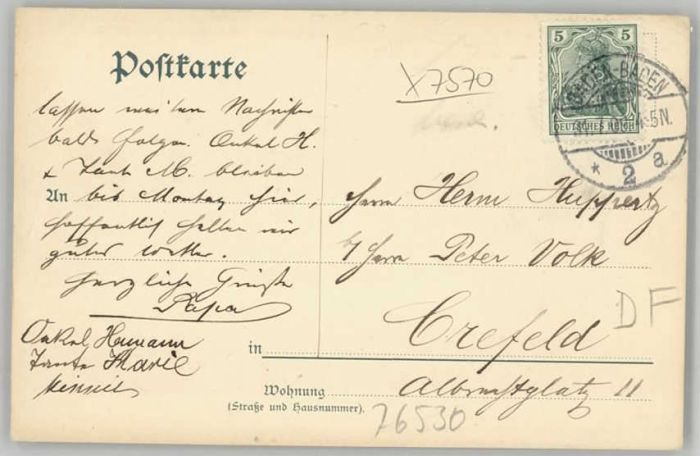 Postkarte
X7570
5 5
DEUTSCHES REICH
BADEN-BADEN
4-5N.
* 2 a
lassen weitere Nachrichten
bald folgen. Onkel H.
& Tante M. bleiben
An bis Montag hier,
hoffentlich haben wir
gutes Wetter.
Herzliche Grüße
Papa
Onkel Hermann
Tante Marie
Herrn Herm Huppertz
Herrn Peter Volk
in Crefeld
Albrechtplatz 11
Wohnung
(Straße und Hausnummer).
DF
76530